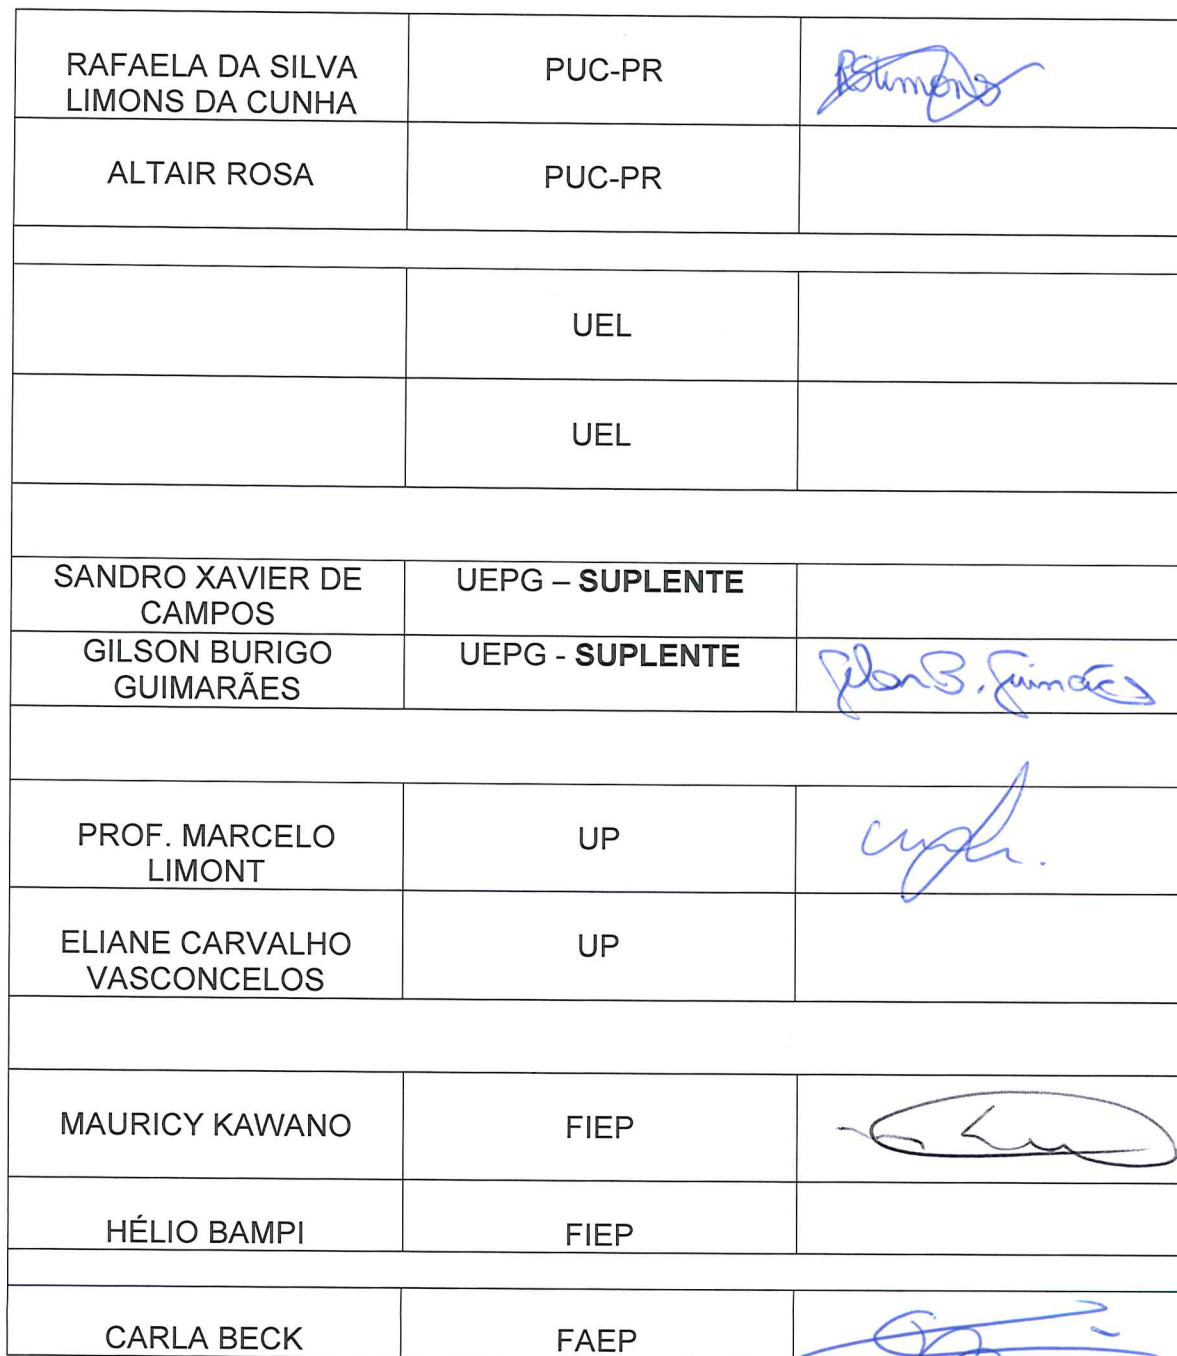 RAFAELA DA SILVA
LIMONS DA CUNHA
PUC-PR
RSLimons
ALTAIR ROSA
PUC-PR
UEL
UEL
SANDRO XAVIER DE
CAMPOS
UEPG – SUPLENTE
GILSON BURIGO
GUIMARÃES
UEPG - SUPLENTE
Gilson B. Guimarães
PROF. MARCELO
LIMONT
UP
ELIANE CARVALHO
VASCONCELOS
UP
MAURICY KAWANO
FIEP
HÉLIO BAMPI
FIEP
CARLA BECK
FAEP